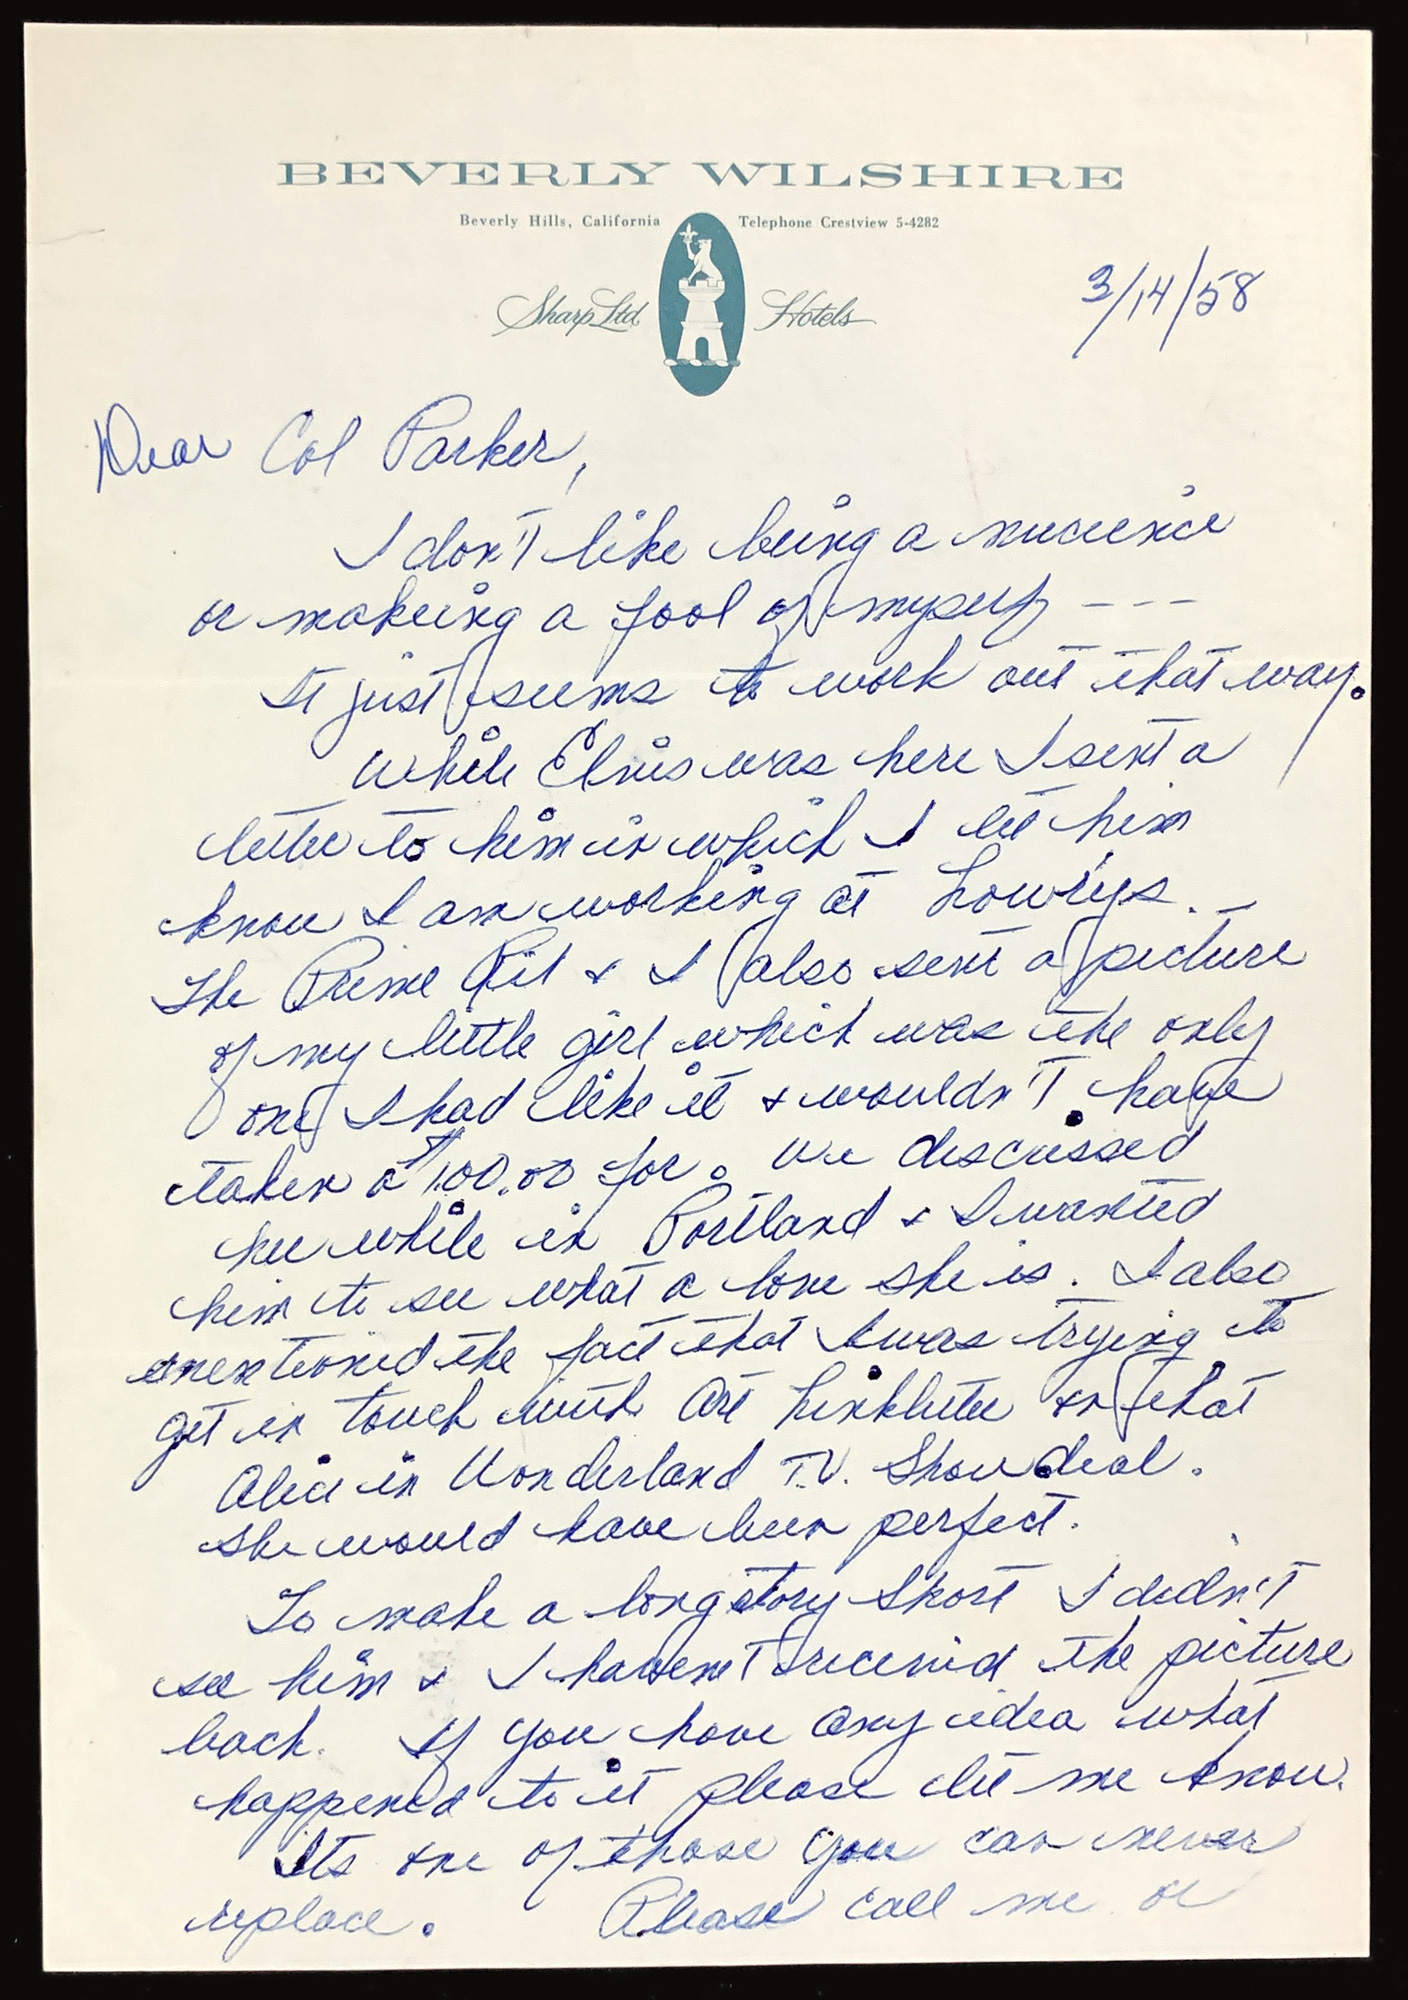 BEVERLY WILSHIRE
Beverly Hills, California Telephone Crestview 5-4282
Sharp Ltd Hotels
3/14/58
Dear Col Parker,
I don't like being a
or makeing a fool of myself ---
It just seems to work out that way.
While Elvis was here I sent a
letter to him in which I let him
know I am working at Lowrys. —
The Prime Rib & I also sent a picture
of my little girl which was the only
one I had like it & wouldn't have
taken a $100.00 for. We discussed
her while in Portland & I wanted
him to see what a love she is. I also
mentioned the fact that I was trying to
get in touch with Art Linkletter on that
Alice in Wonderland T.V. Show deal.
She would have been perfect.
To make a long story short I didn't
see him & I haven't received the picture
back. If you have any idea what
happened to it please let me know.
Its one of those you can never
replace. Please call me or